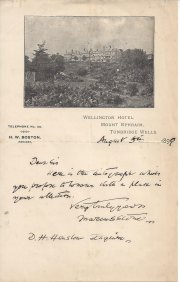 WELLINGTON HOTEL
MOUNT EPHRAIM,
TUNBRIDGE WELLS.
TELEPHONE No. 30.
H. W. BOSTON,
August 5th
Dear Sir
Here is the autograph which
you propose to honour with a place in
your collection.
Very truly yours
D. H.